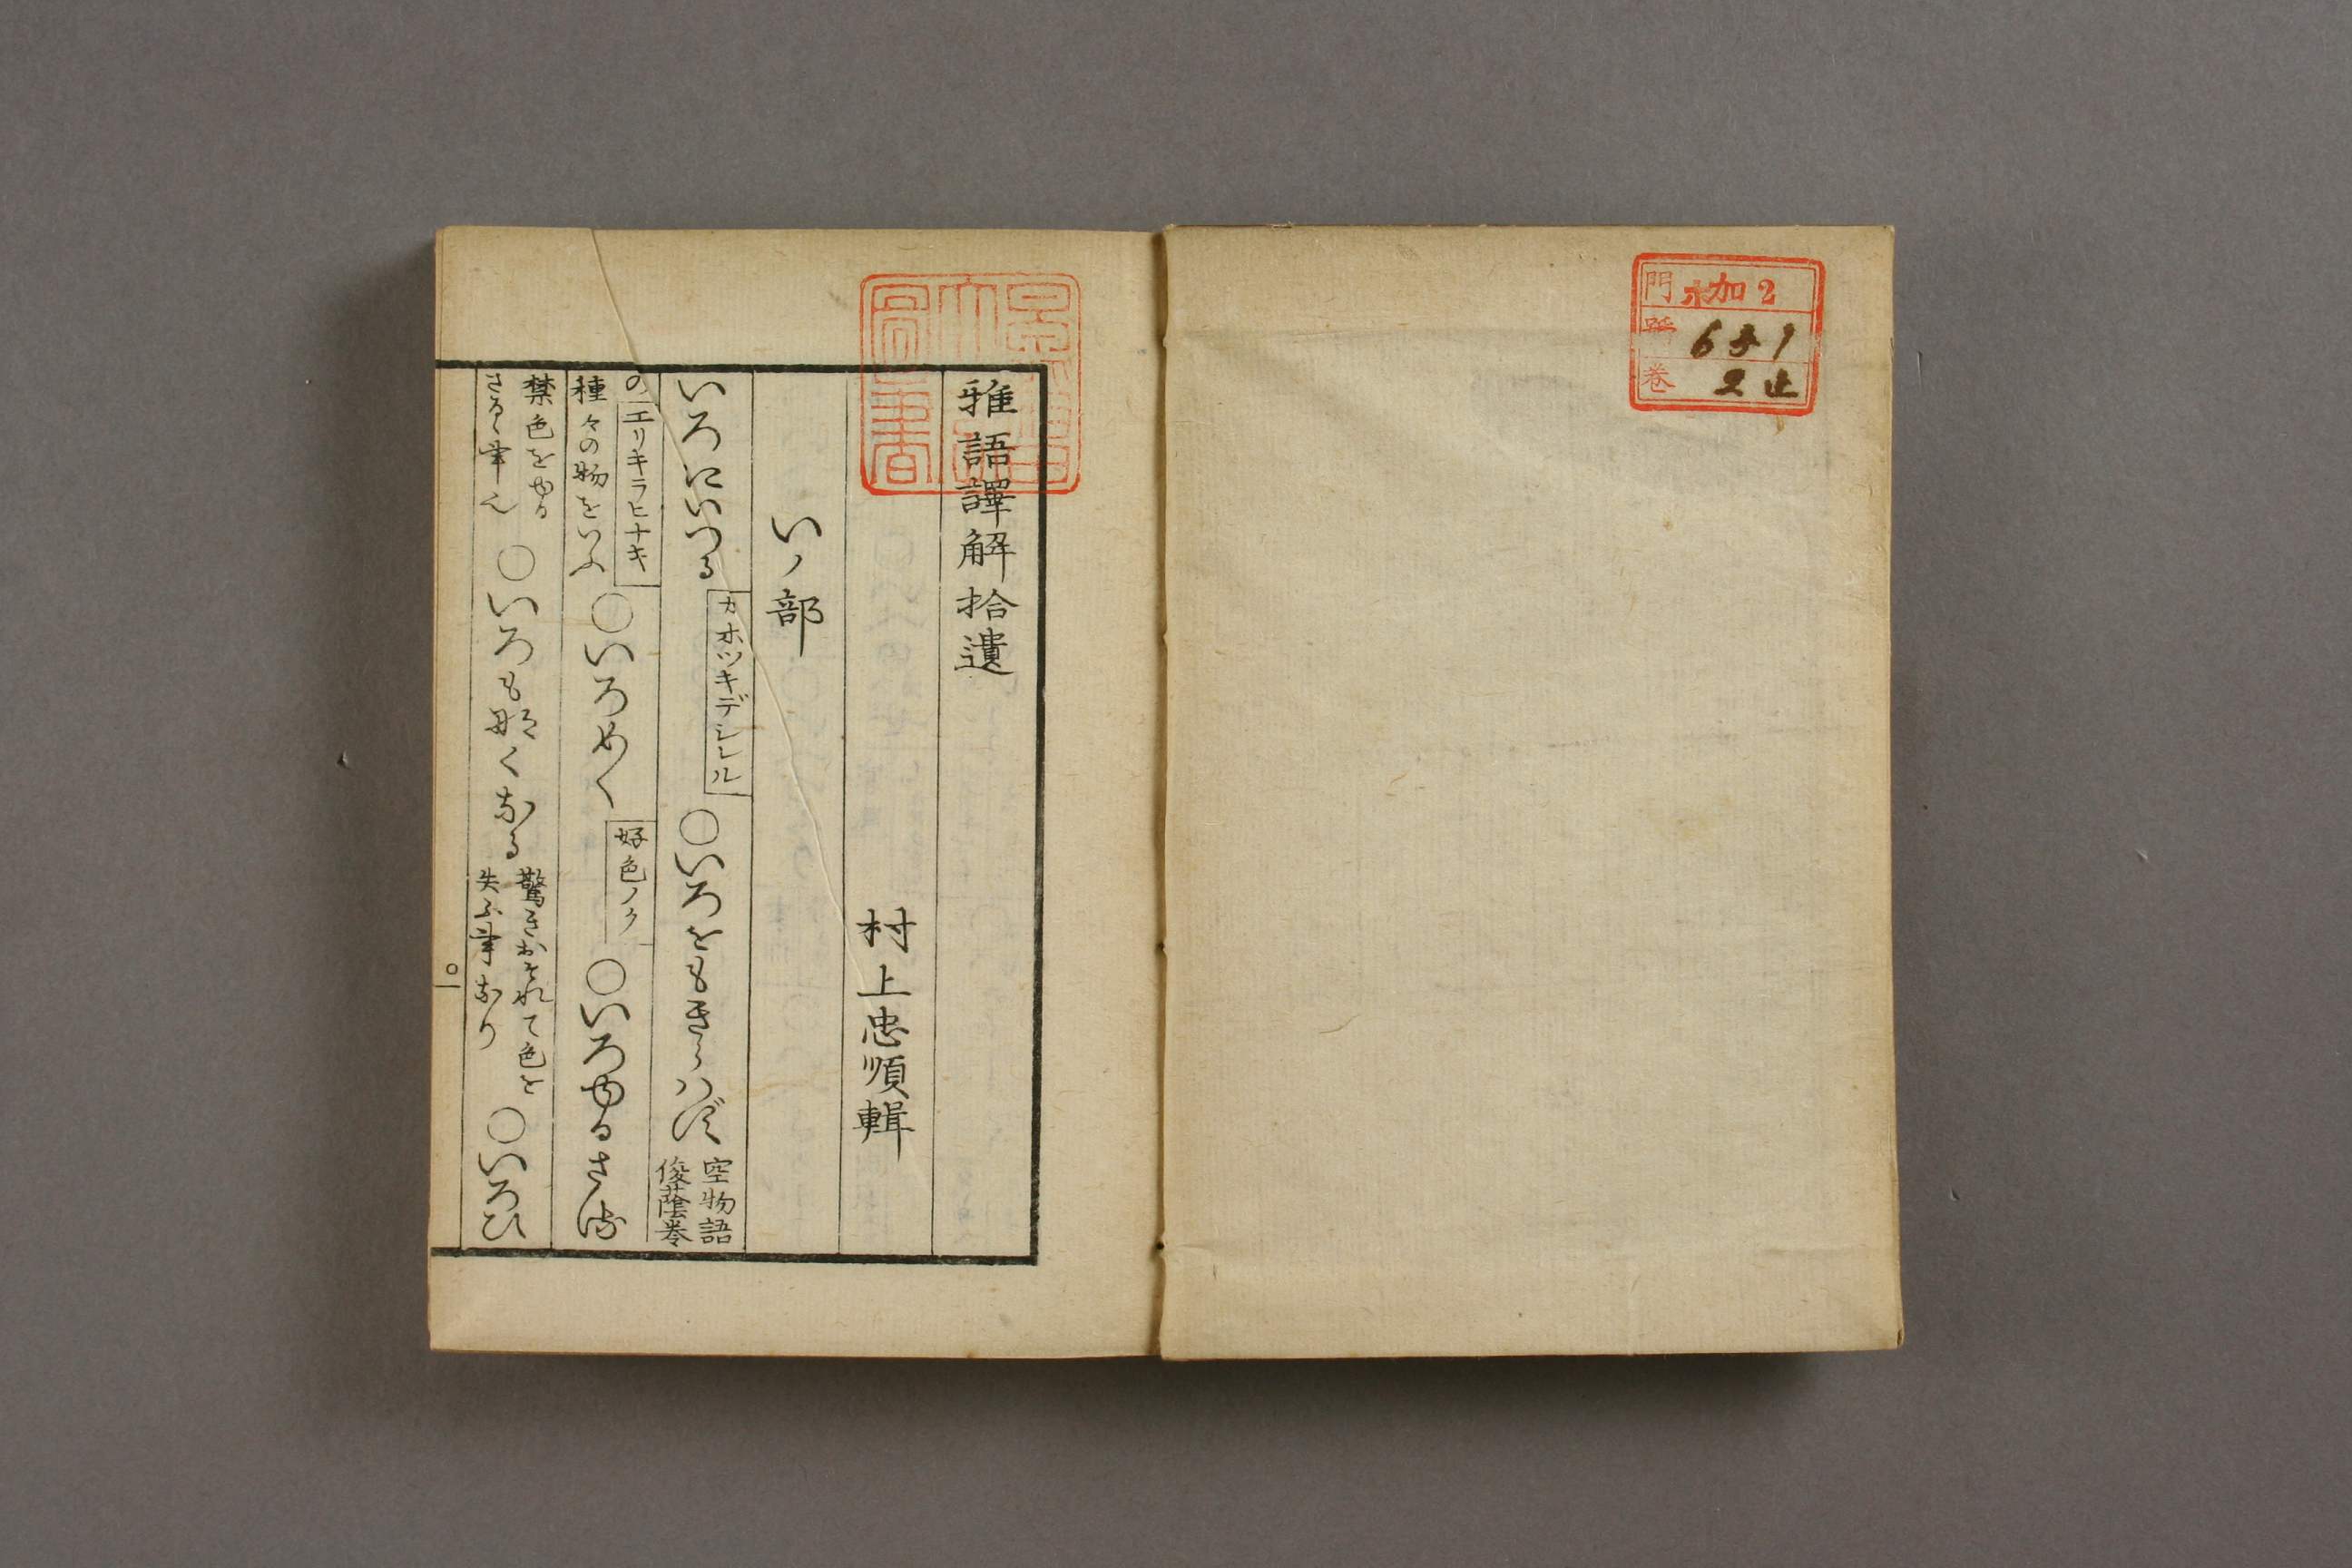 門 加2
号 651
巻 2止
雅語譯解拾遺
村上忠順輯
いノ部
いろにいづる
カホツキデシレル
○いろをもきらハず
空物語
俊蔭巻
の
エリキラヒナキ
種々の物をいふ
○いろめく
好色ノク
○いろゆるさる
禁色をゆる
さるゝ事也
○いろも那くなる
驚きおそれて色を
失ふ事なり
○いろひ
○一